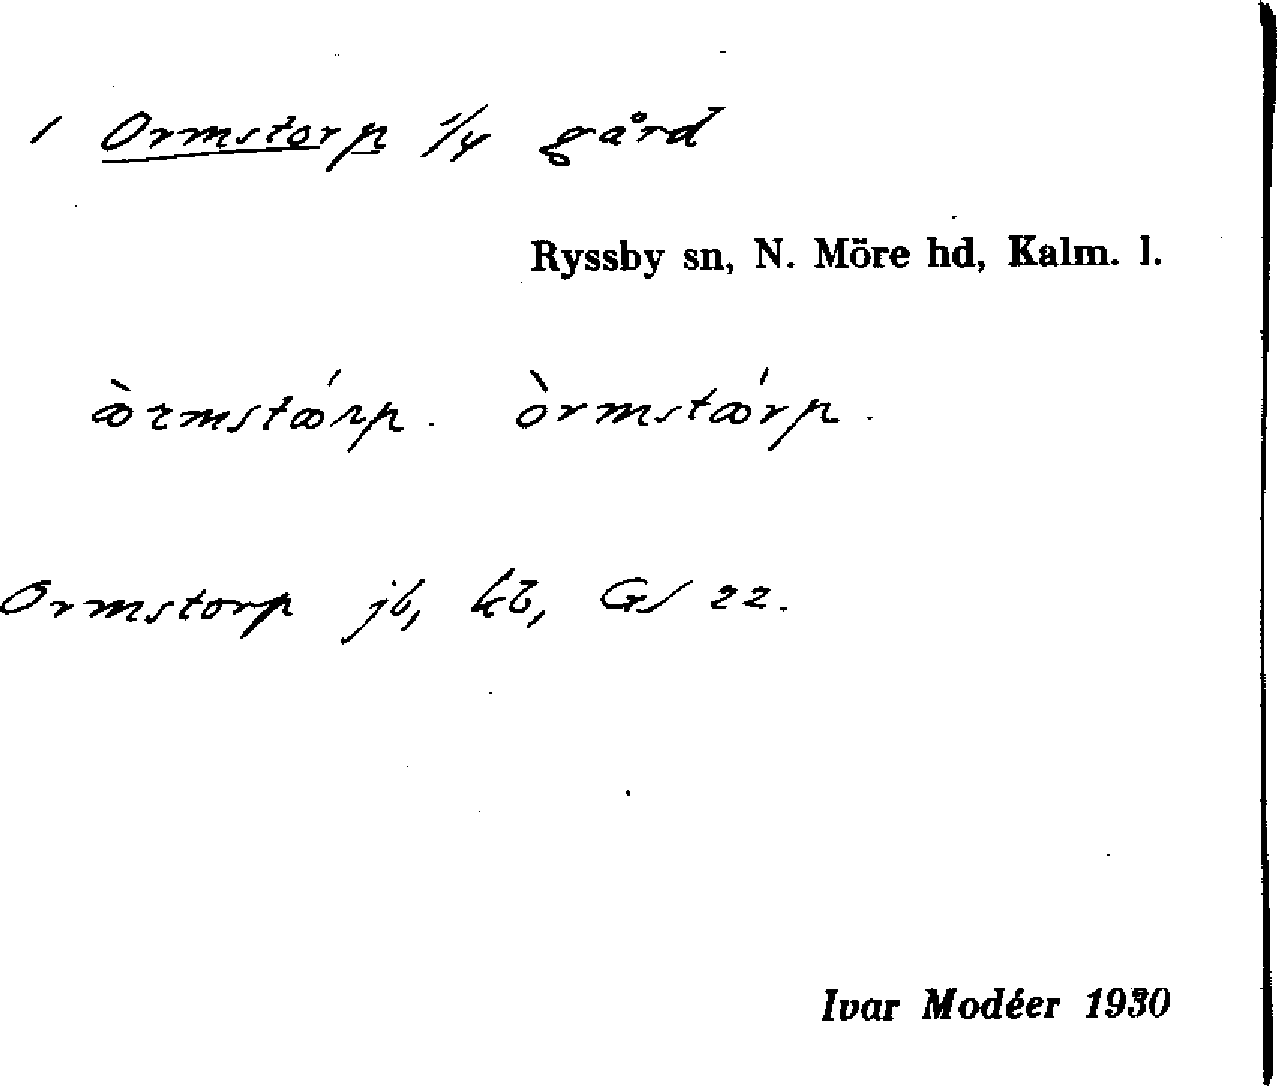 / Ormstorp 1/4 gård
Ryssby sn, N. Möre hd, Kalm. l.
ꝏ̀rmstꝏ́rp. òrmstꝏ́rp.
Ormstorp jb, kb, GS 22.
Ivar Modéer 1930